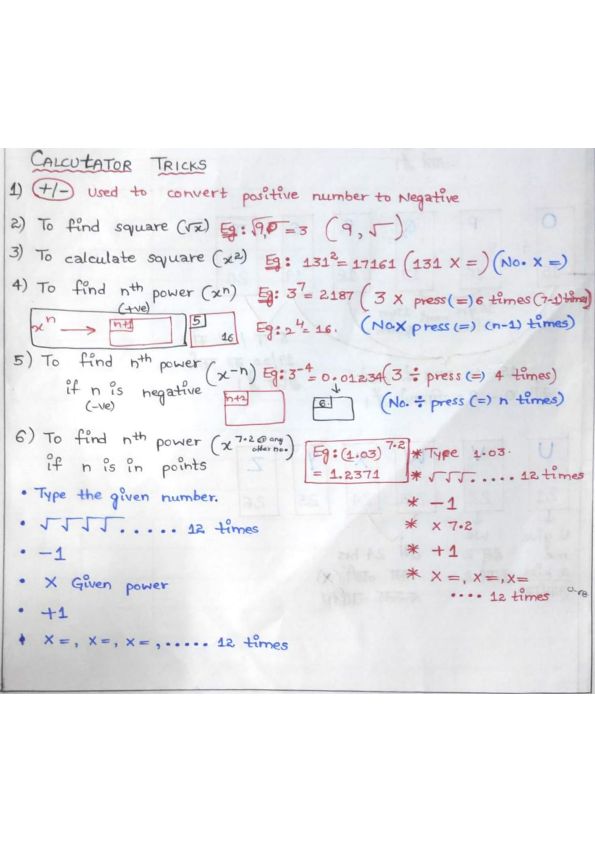 CALCULATOR TRICKS
1) +/- Used to convert positive number to Negative
2) To find square (√x) Eg: √9 = 3 (9, √)
3) To calculate square (x²) Eg: 131² = 17161 (131 X =) (No. X =)
4) To find nth power (xⁿ) Eg: 3⁷ = 2187 (3 X press (=) 6 times (7-1) times)
(+ve)
xⁿ → n+1 5 16 Eg: 2⁴ = 16. (No.X press (=) (n-1) times)
5) To find nth power (x⁻ⁿ) Eg: 3⁻⁴ = 0.01234 (3 ÷ press (=) 4 times)
if n is negative n+2 6 (No. ÷ press (=) n times)
(-ve)
6) To find nth power (x 7.2 @ any other no.)
if n is in points
Eg: (1.03)^7.2
= 1.2371
• Type the given number.
• √√√√ ..... 12 times
• -1
• X Given power
• +1
• X=, X=, X=, ..... 12 times
* Type 1.03.
* √√√ ..... 12 times
* -1
* X 7.2
* +1
* X=, X=, X=
.... 12 times